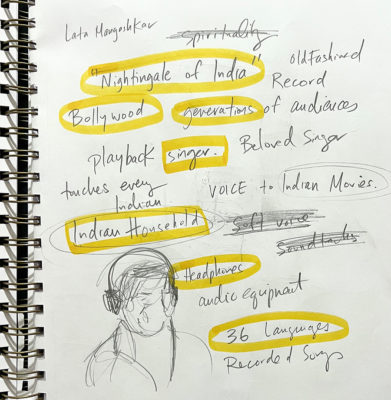 Lata Mangeshkar
spirituality
"Nightingale of India"
Old Fashioned
Record
Bollywood
generations of audiences
Playback singer.
Beloved Singer
touches every
Indian
Indian Household
VOICE to Indian Movies.
Soft voice
Soundtracks
Headphones
audio equipment
36 Languages
Recorded Songs